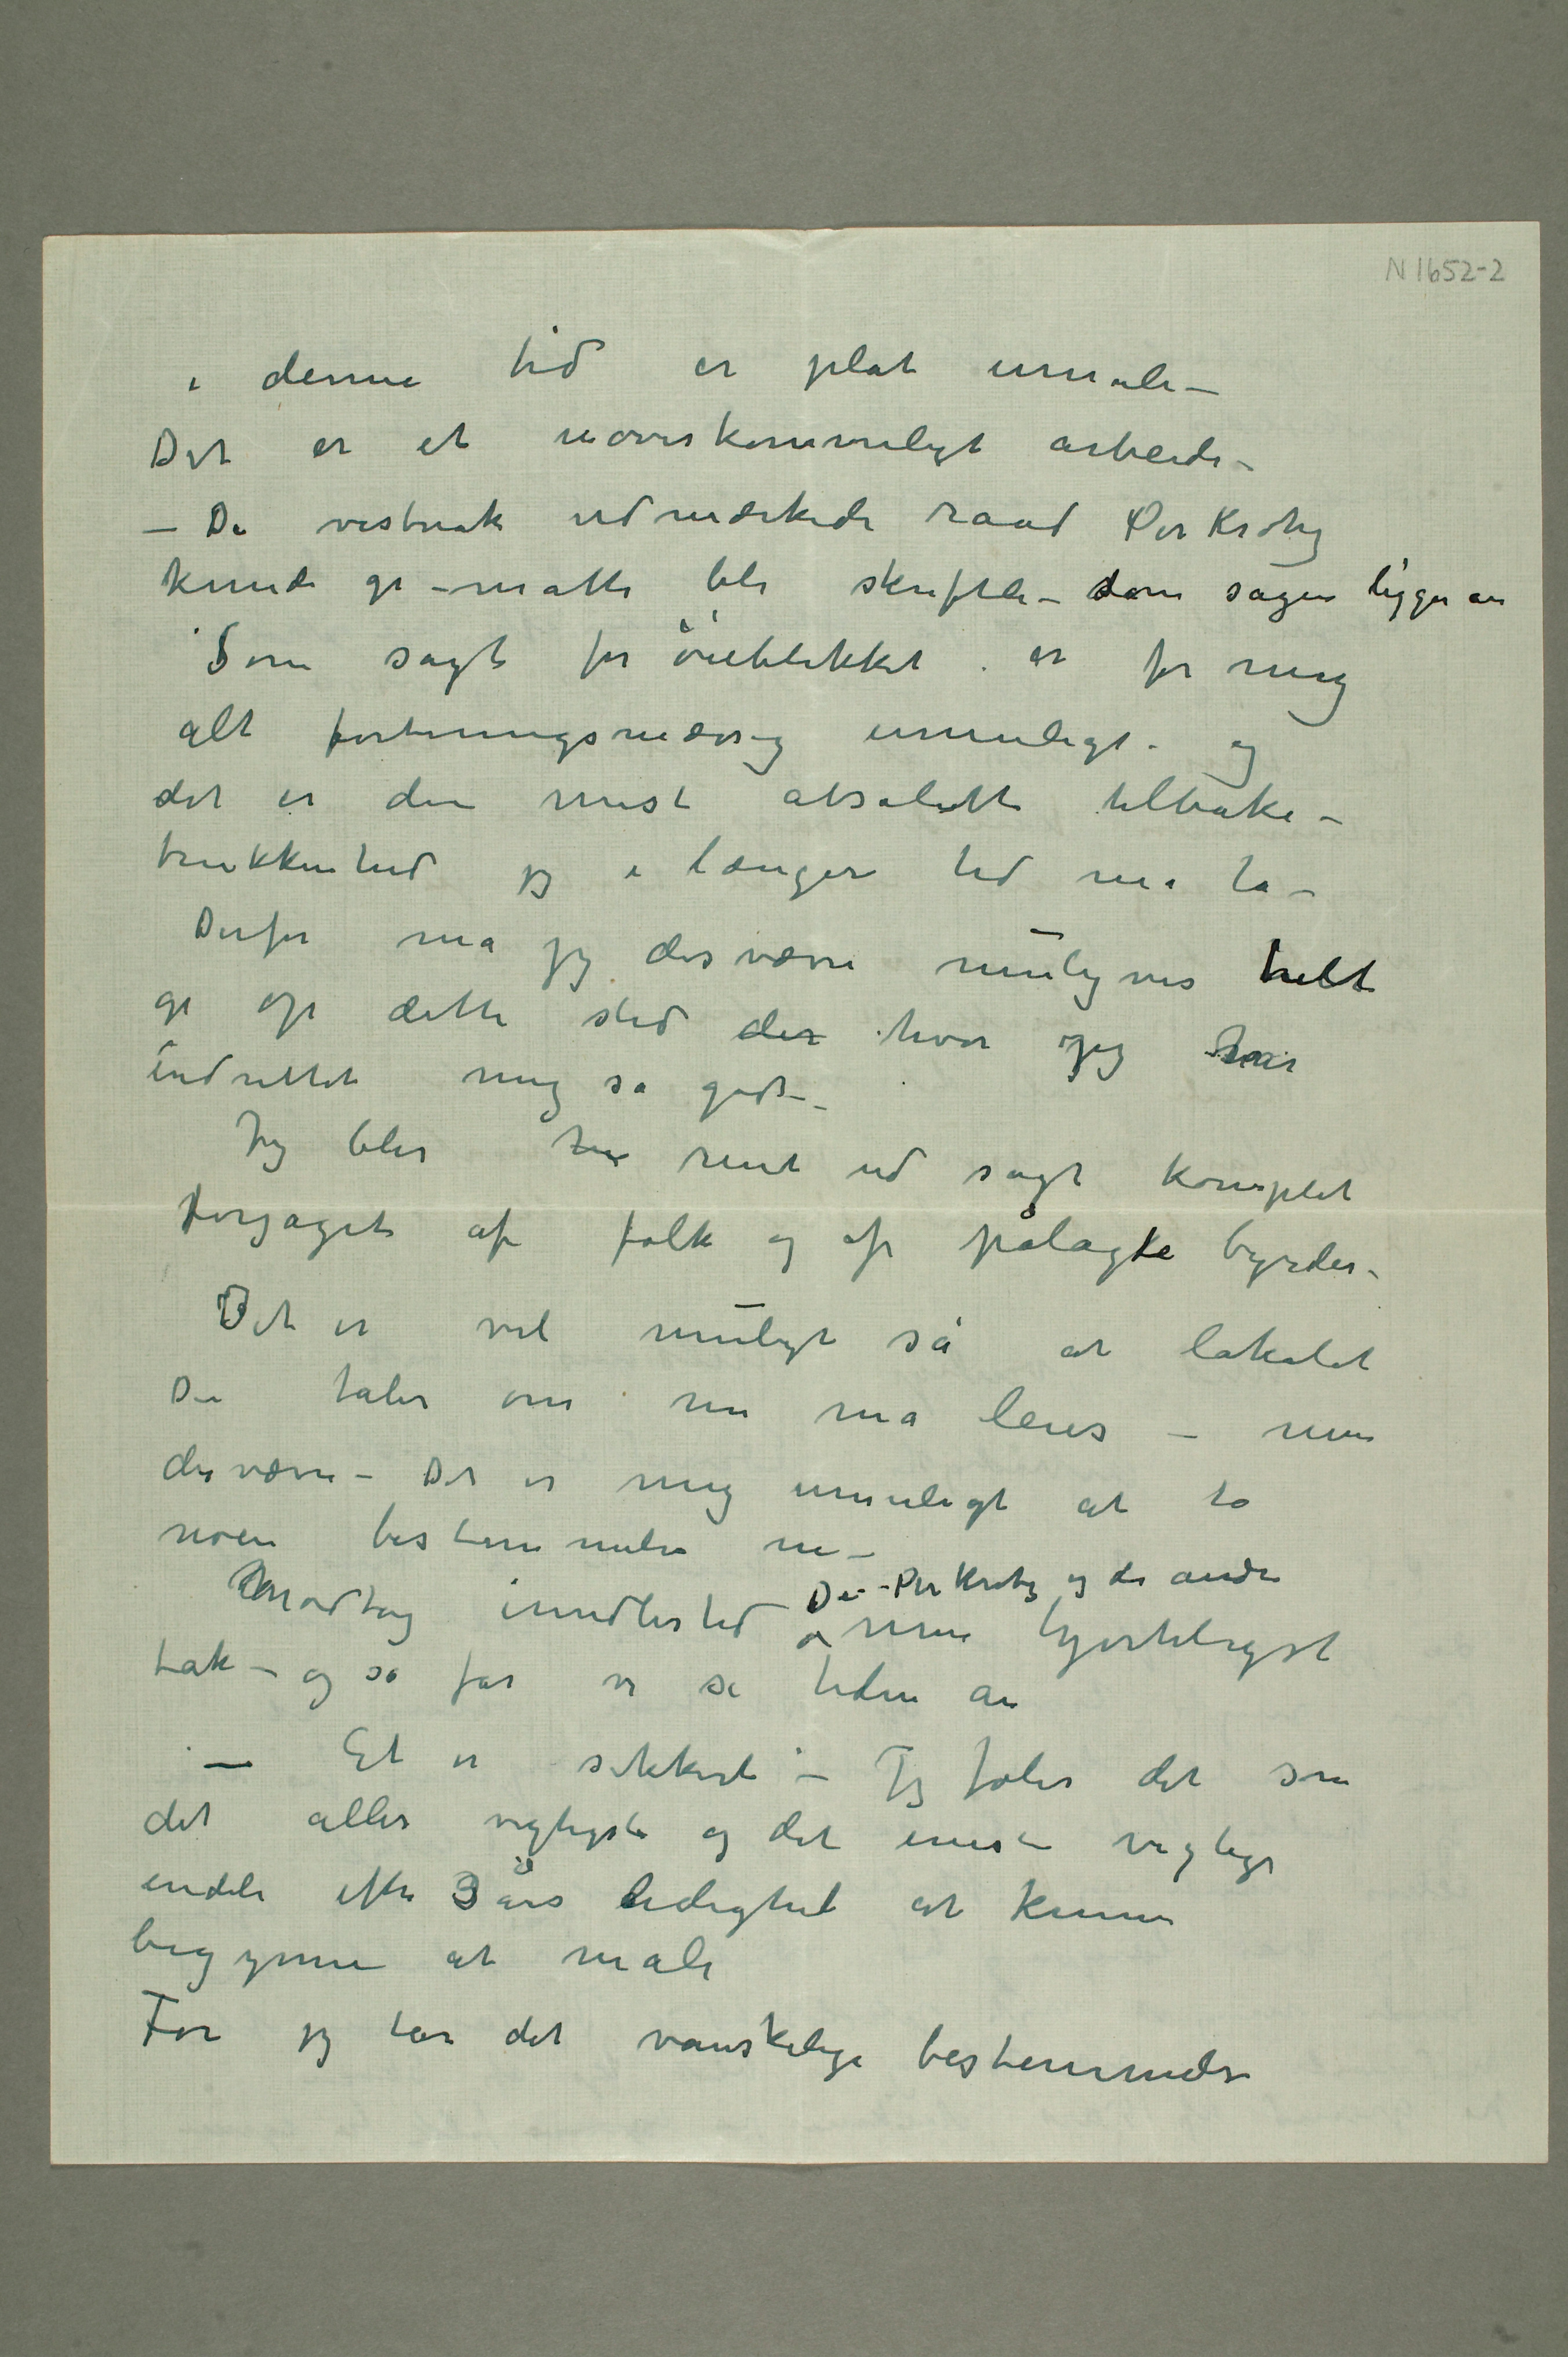 N 1652-2
i denne tid er plat umuli –
Det er et uoverkommeligt arbeide –
– De vistnok udmærkede raad Per Krohg
kunde gi – måtte bli skriftli – som sagen ligger an
Som sagt for øieblikket er for mig
alt forteningsmæsig umuligt – og
det er den mest absolutte tilbake –
trukkenhed jeg i længere tid må ta –
Derfor må jeg desværre muligvis helt
gi op dette sted der hvor jeg har
indrettet mig så godt –
Jeg blir rent ud sagt komplet
forjaget af folk og af pålagte byrder –
Det er vel muligt så at lokalet
De taler om nu må leies – men
desværre – Det er mig umuligt at ta
noen bestemmelse nu –
De – Per Krohg og de andre
Modtag imidlertid min hjerteligst
tak – og så får vi se tiden an
– Et er sikkert – Jeg føler det som
det aller vigtigste og det eneste vigtige
endeli efter 3 års ledighet at kunne
begynne at male
Før jeg tar det vanskelige bestemmelse